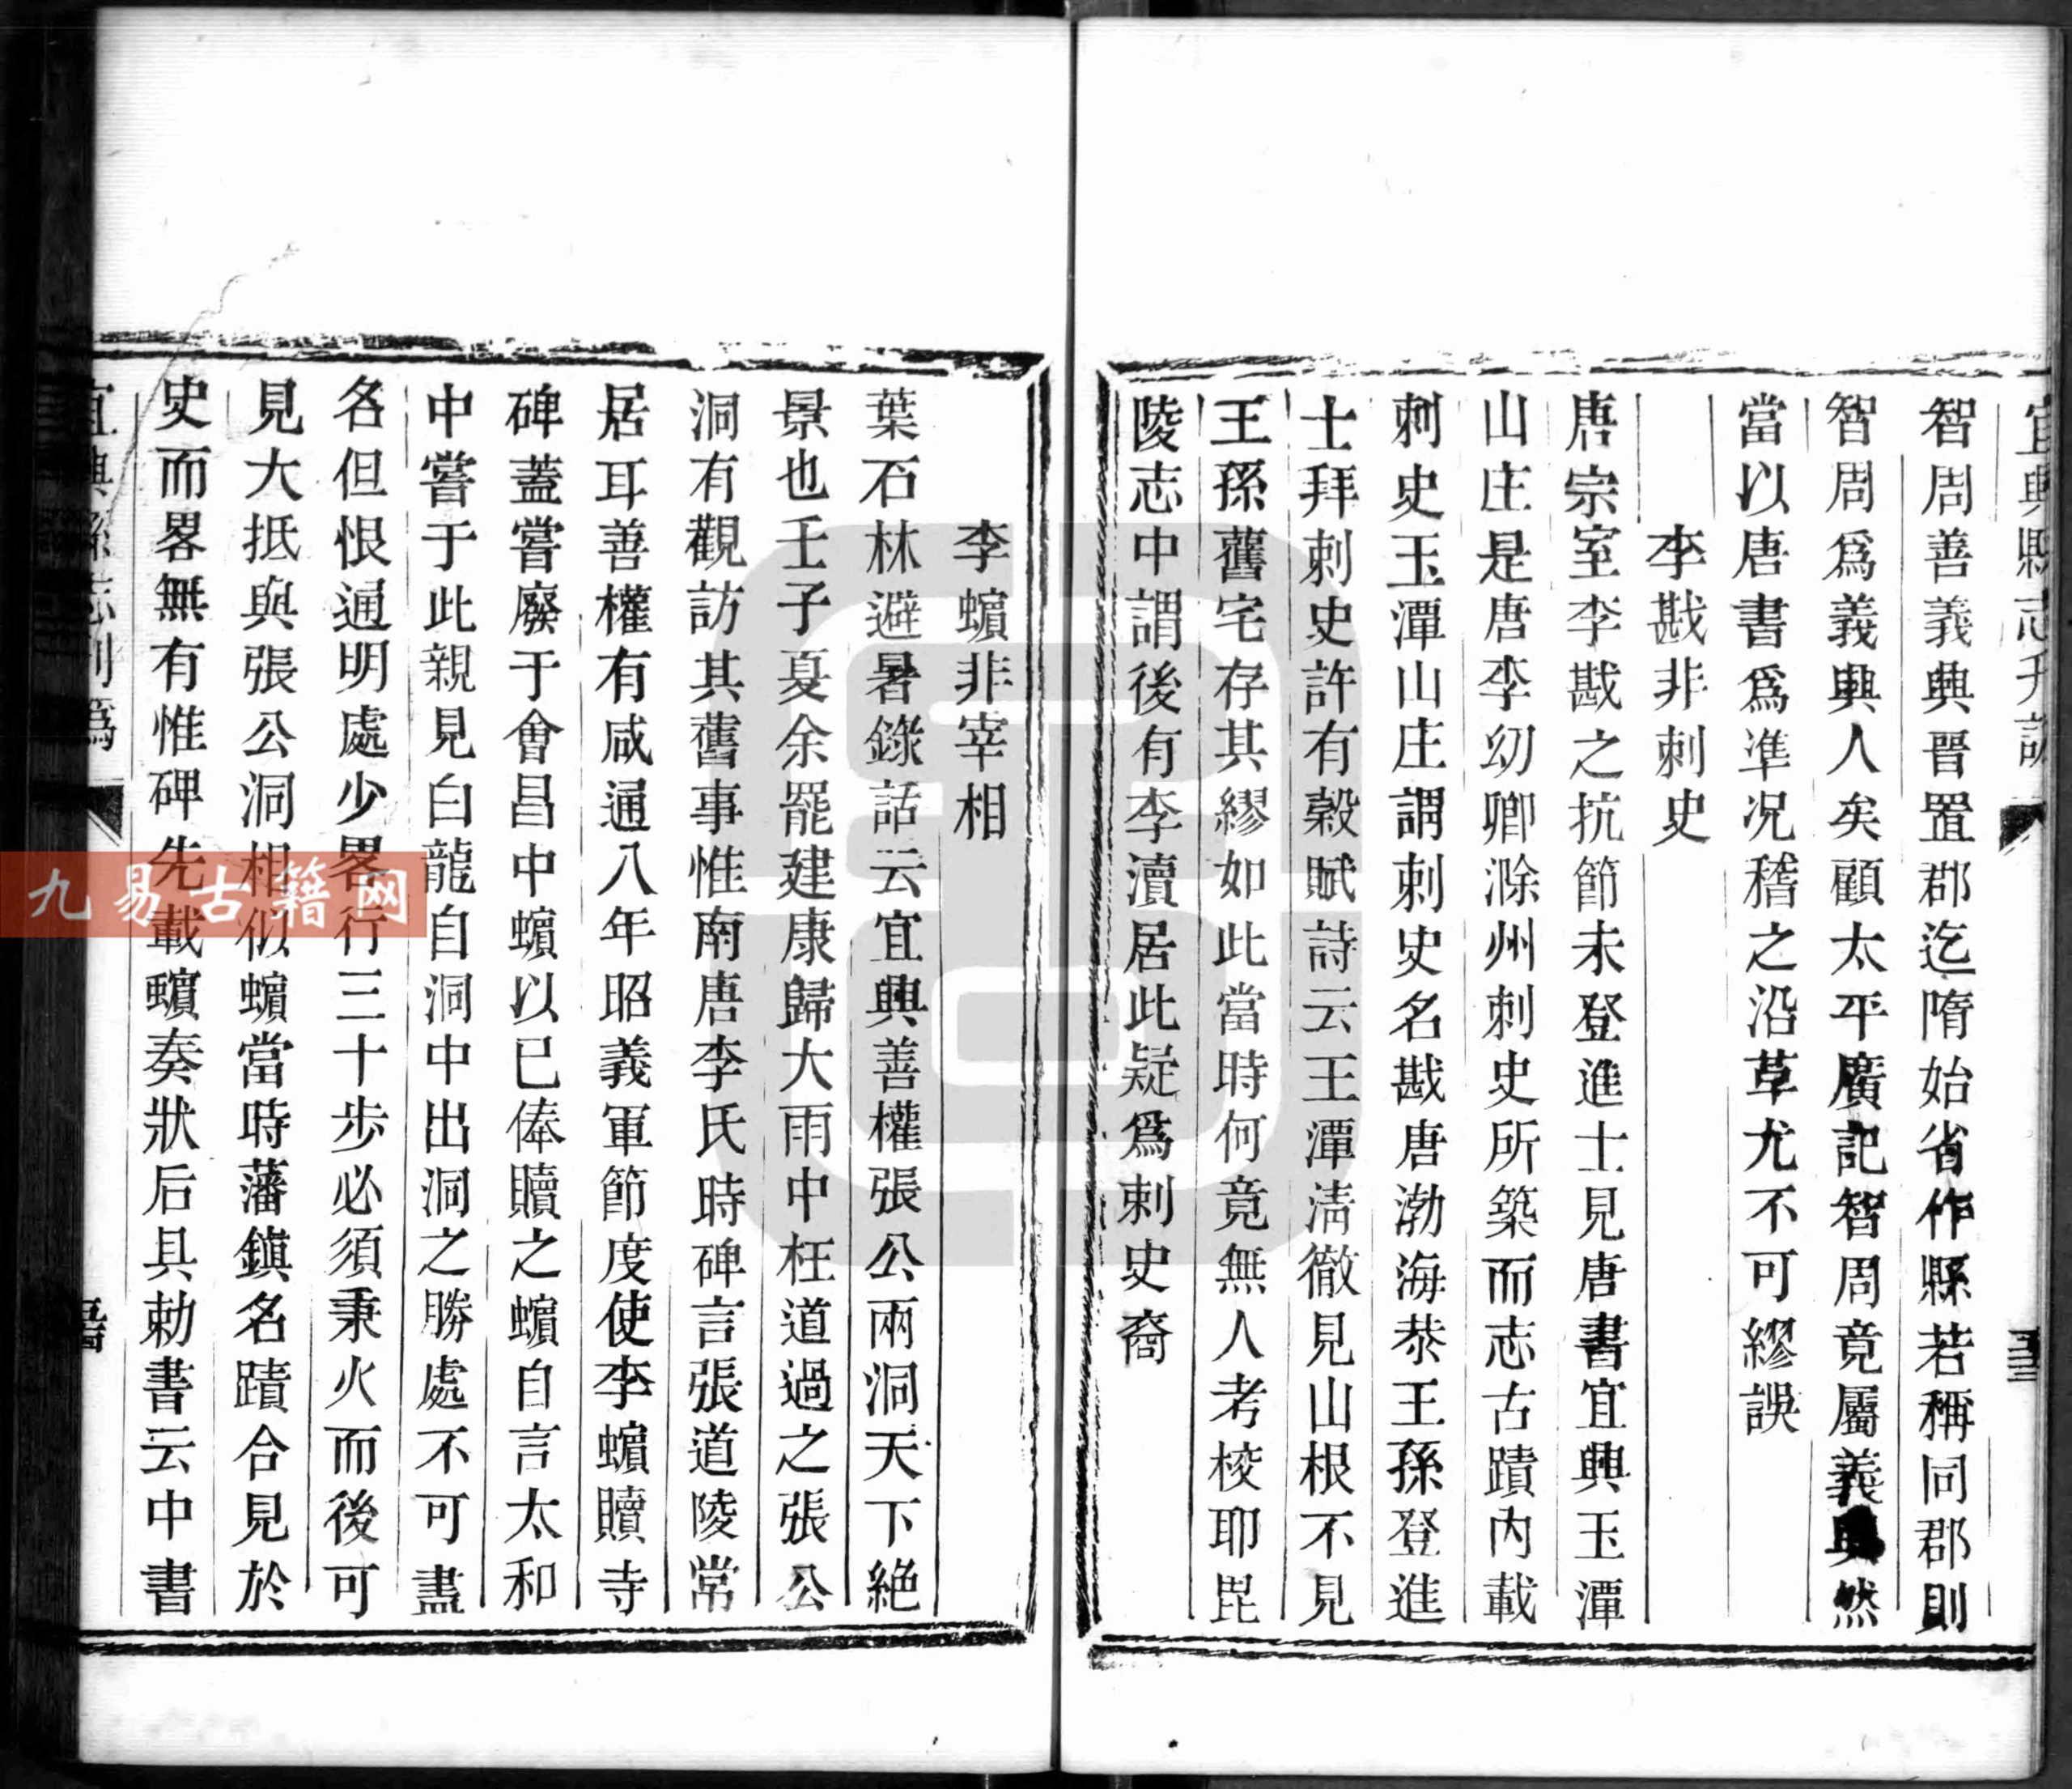 宜興縣志刊譌
智周善義興晋置郡迄隋始省作縣若稱同郡則
智周爲義興人矣顧太平廣記智周竟屬義興然
當以唐書爲準况稽之沿革尤不可繆誤
李戡非刺史
唐宗室李戡之抗節未登進士見唐書宜興玉潭
山庄是唐李幼卿滁州刺史所築而志古蹟内載
刺史玉潭山庄謂刺史名戡唐渤海恭王孫登進
士拜刺史許有榖賦詩云王潭淸徹見山根不見
王孫舊宅存其繆如此當時何竟無人考校耶毘
陵志中謂後有李瀆居此疑爲刺史裔
李蠙非宰相
葉石林避暑錄話云宜興善權張公兩洞天下絶
景也壬子夏余罷建康歸大雨中枉道過之張公
洞有觀訪其舊事惟南唐李氏時碑言張道陵常
居耳善權有咸通八年昭義軍節度使李蠙贖寺
碑蓋嘗廢于會昌中蠙以已俸贖之蠙自言太和
中嘗于此親見白龍自洞中出洞之勝處不可盡
名但恨通明處少畧行三十步必須秉火而後可
見大抵與張公洞相似蠙當時藩鎭名蹟合見於
史而畧無有惟碑先載蠙奏狀后具勅書云中書
宜興縣志刊譌
九易古籍网